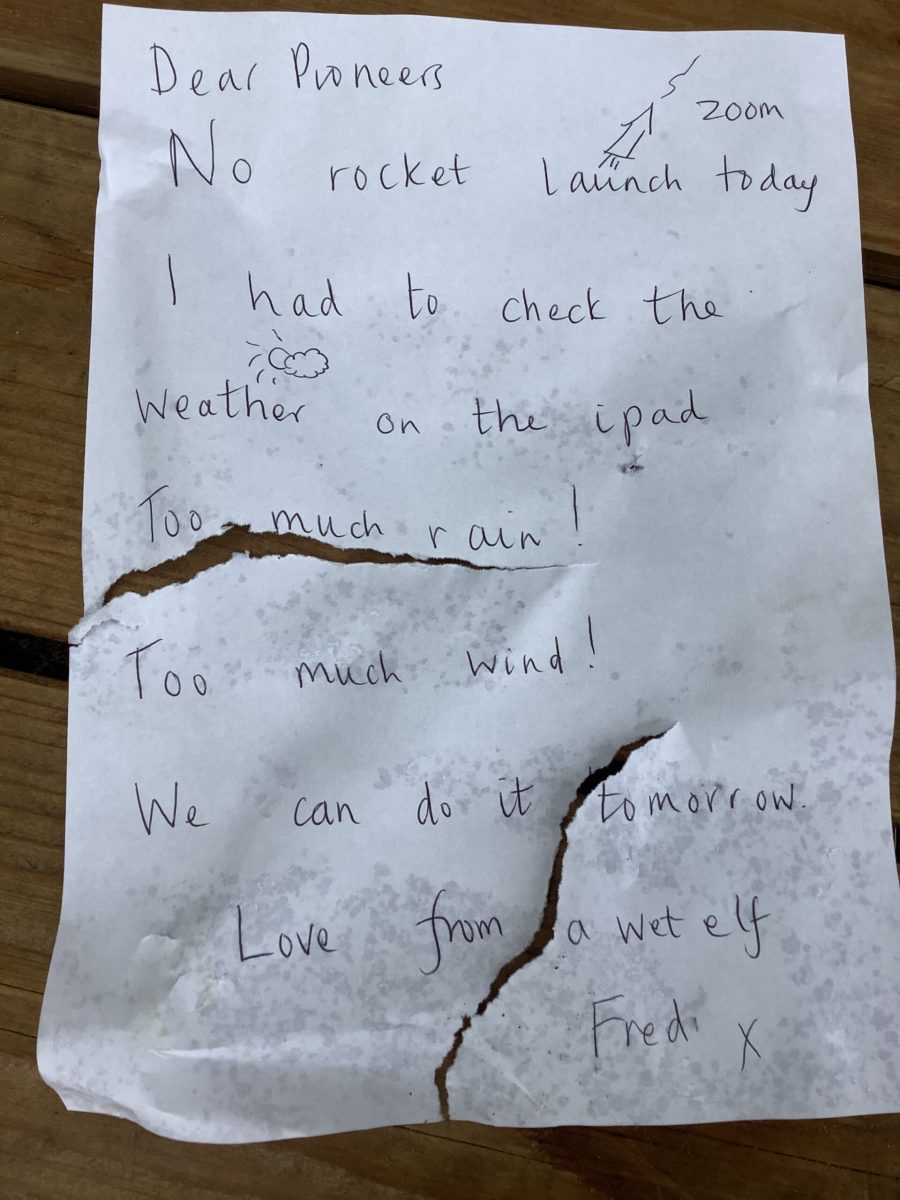 Dear Pioneers
zoom
No rocket launch today
I had to check the
Weather on the ipad
Too much rain!
Too much wind!
We can do it tomorrow.
Love from a wet elf
Fred x